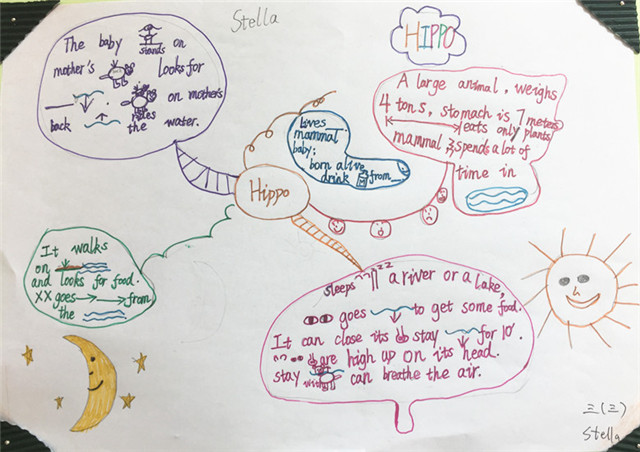 Stella
HIPPO
The baby stands on
mother's looks for
on mother's
back rides
the water.
Lives
mammal
baby:
born alive
drink from
A large animal, weighs
4 tons, stomach is 7 meters
eats only plants
mammal, spends a lot of
time in
Hippo
It walks
on
and looks for food.
XX goes from
the
sleeps zz a river or a lake,
goes to get some food.
It can close its stay for 10'.
are high up on its head.
stay with can breathe the air.
三(三)
Stella